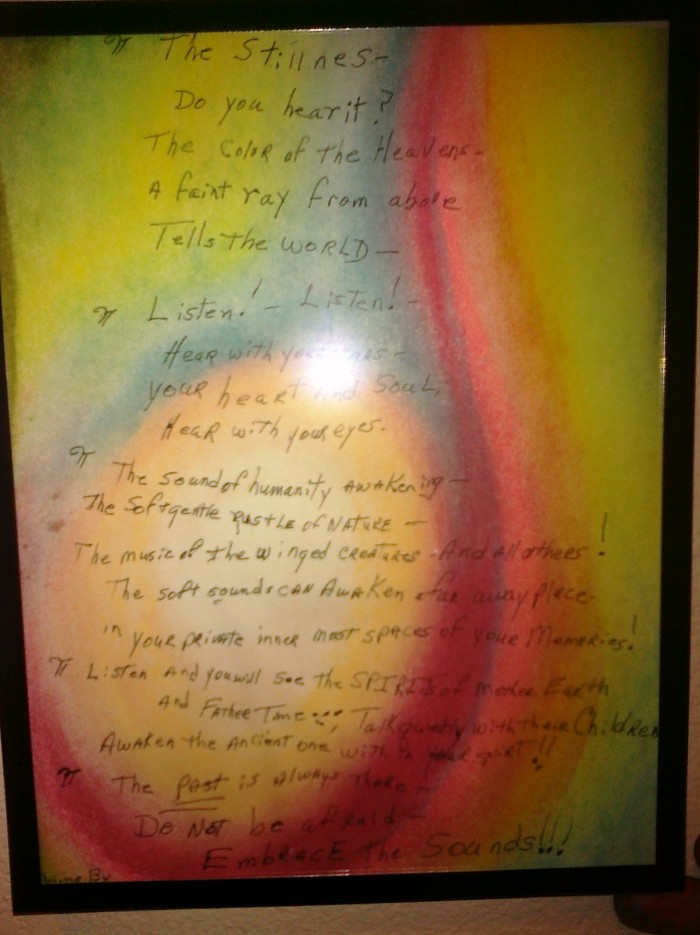 The Stillnes-
Do you hear it?
The Color of the Heavens-
A faint ray from above
Tells the WORLD-
Listen! - Listen! -
Hear with your -
your heart and Soul,
Hear with your eyes.
The Sound of humanity AWAKening-
The Soft gentle RUSTLE of NATURE -
The music of the winged CREATURES -And All others!
The soft sounds CAN AwaKen a far away place-
in your private inner most spaces of your Memories!
Listen And you will see the SPIRITS of mother Earth
And Father Time Talk quietly with their Children
AWAKen the Ancient one with in your !!
The PAST is Always There -
Do Not be afraid -
EmbRACE The Sounds!!!
By